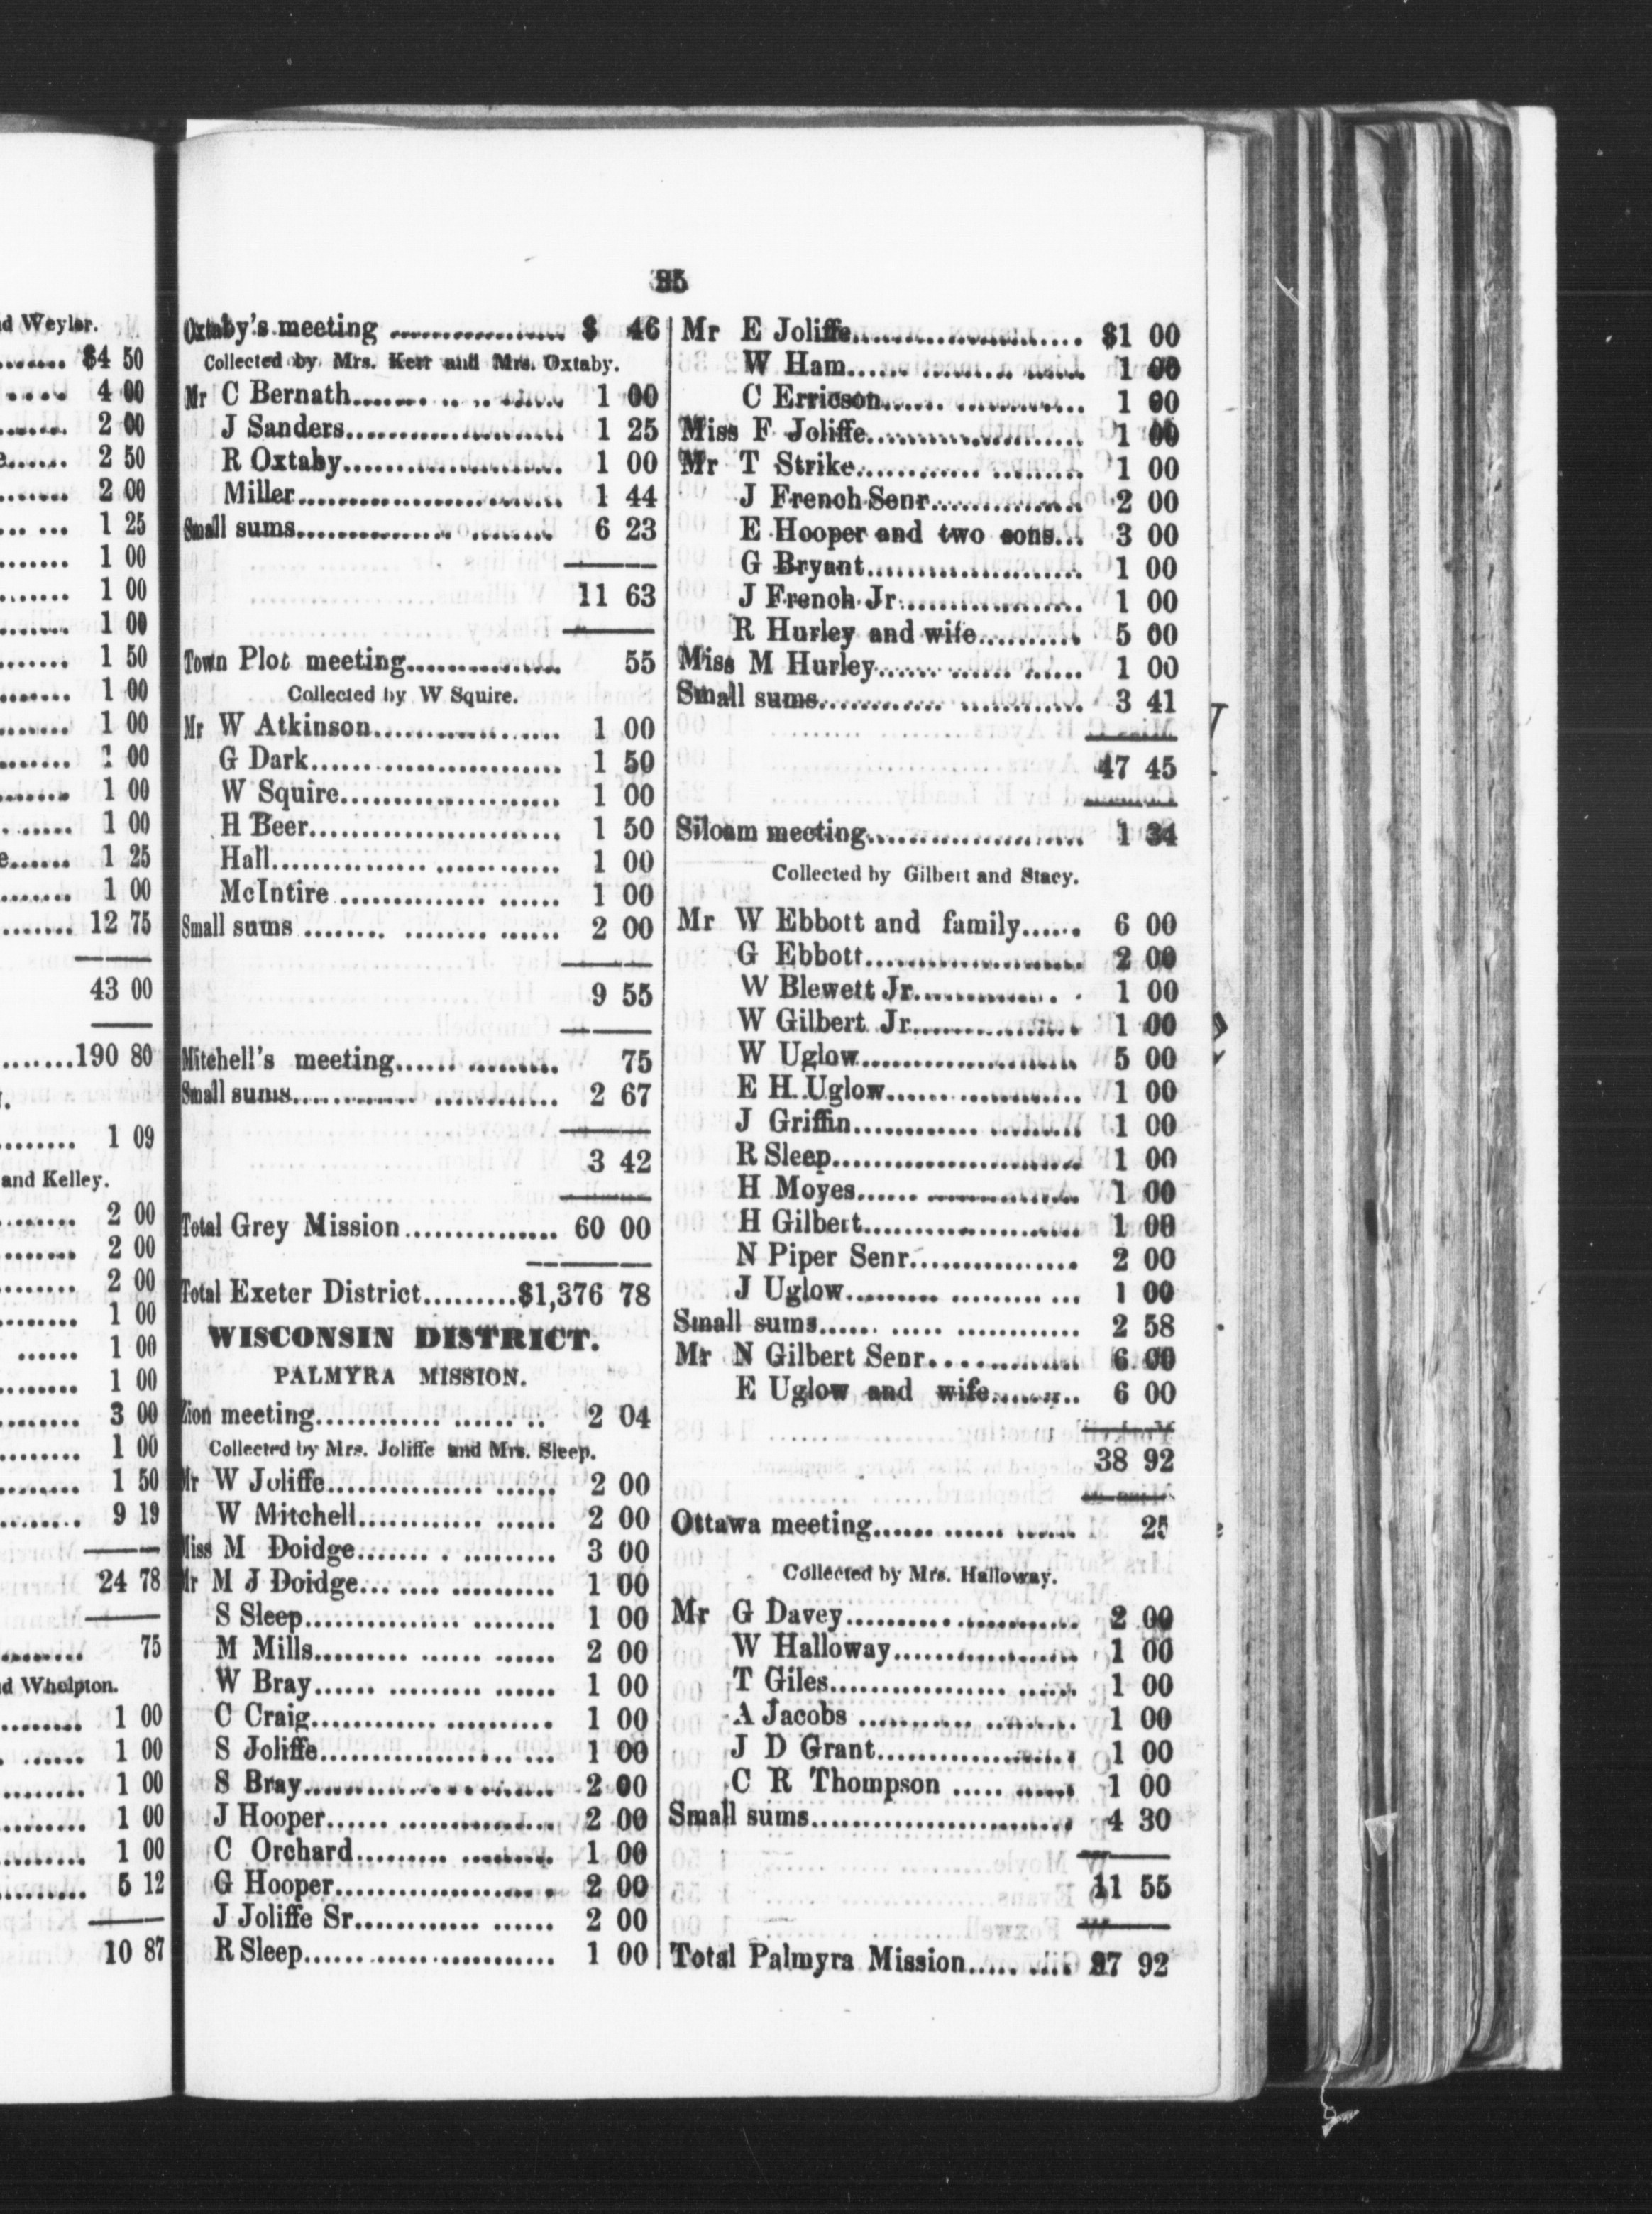 d Weyler.
$4 50
4 00
2 00
2 50
2 00
1 25
1 00
1 00
1 00
1 50
1 00
1 00
1 00
1 00
1 00
e...... 1 25
1 00
12 75
43 00
190 80
1 09
and Kelley.
2 00
2 00
2 00
1 00
1 00
1 00
3 00
1 00
1 50
9 19
24 78
75
d Whelpton.
1 00
1 00
1 00
1 00
1 00
5 12
10 87
35
Oxtaby's meeting ................. $ 46
Collected by Mrs. Kerr and Mrs. Oxtaby.
Mr C Bernath....... .. .. ...... 1 00
J Sanders...................... 1 25
R Oxtaby...................... 1 00
Miller.......................... 1 44
Small sums................ ........ 6 23
11 63
Town Plot meeting............... 55
Collected by W Squire.
Mr W Atkinson................... 1 00
G Dark......................... 1 50
W Squire...................... 1 00
H Beer......................... 1 50
Hall................ ............ 1 00
McIntire .............. ...... 1 00
Small sums ........ ........ ...... 2 00
9 55
Mitchell's meeting...... ......... 75
Small sums............ ............ 2 67
3 42
Total Grey Mission............... 60 00
Total Exeter District.........$1,376 78
WISCONSIN DISTRICT.
PALMYRA MISSION.
Zion meeting............ ...... .. 2 04
Collected by Mrs. Joliffe and Mrs. Sleep.
Mr W Joliffe............... ...... 2 00
W Mitchell............ ...... 2 00
Miss M Doidge....... . ......... 3 00
Mr M J Doidge... .... .......... 1 00
S Sleep................ ........ 1 00
M Mills......... ...... ...... 2 00
W Bray...... ......... ...... 1 00
C Craig............ ........... 1 00
S Joliffe.................. ... 1 00
S Bray......................... 2 00
J Hooper...... ............... 2 00
C Orchard......... ......... 1 00
G Hooper...................... 2 00
J Joliffe Sr............ ...... 2 00
R Sleep......................... 1 00
Mr E Joliffe....................... $1 00
W Ham...... ......... ...... 1 00
C Erricson...... ............. 1 00
Miss F Joliffe...................... 1 00
Mr T Strike............ ......... 1 00
J French Senr............... 2 00
E Hooper and two sons... 3 00
G Bryant...................... 1 00
J French Jr.................. 1 00
R Hurley and wife.......... 5 00
Miss M Hurley....... ...... ...... 1 00
Small sums............ ............ 3 41
47 45
Siloam meeting..................... 1 34
Collected by Gilbert and Stacy.
Mr W Ebbott and family...... 6 00
G Ebbott...................... 2 00
W Blewett Jr.............. . . 1 00
W Gilbert Jr................. 1 00
W Uglow...................... 5 00
E H Uglow................... 1 00
J Griffin............ ......... 1 00
R Sleep......................... 1 00
H Moyes...... ............... 1 00
H Gilbert...................... 1 00
N Piper Senr................ 2 00
J Uglow......... ......... ... 1 00
Small sums...... ..... ............ 2 58
Mr N Gilbert Senr............... 6 00
E Uglow and wife......... 6 00
38 92
Ottawa meeting...... ...... ...... 25
Collected by Mrs. Halloway.
Mr G Davey.......... ........... 2 00
W Halloway.................. 1 00
T Giles................. ...... 1 00
A Jacobs ........... ......... 1 00
J D Grant.................... 1 00
C R Thompson ..... ...... 1 00
Small sums.......................... 4 30
11 55
Total Palmyra Mission..... .... 97 92